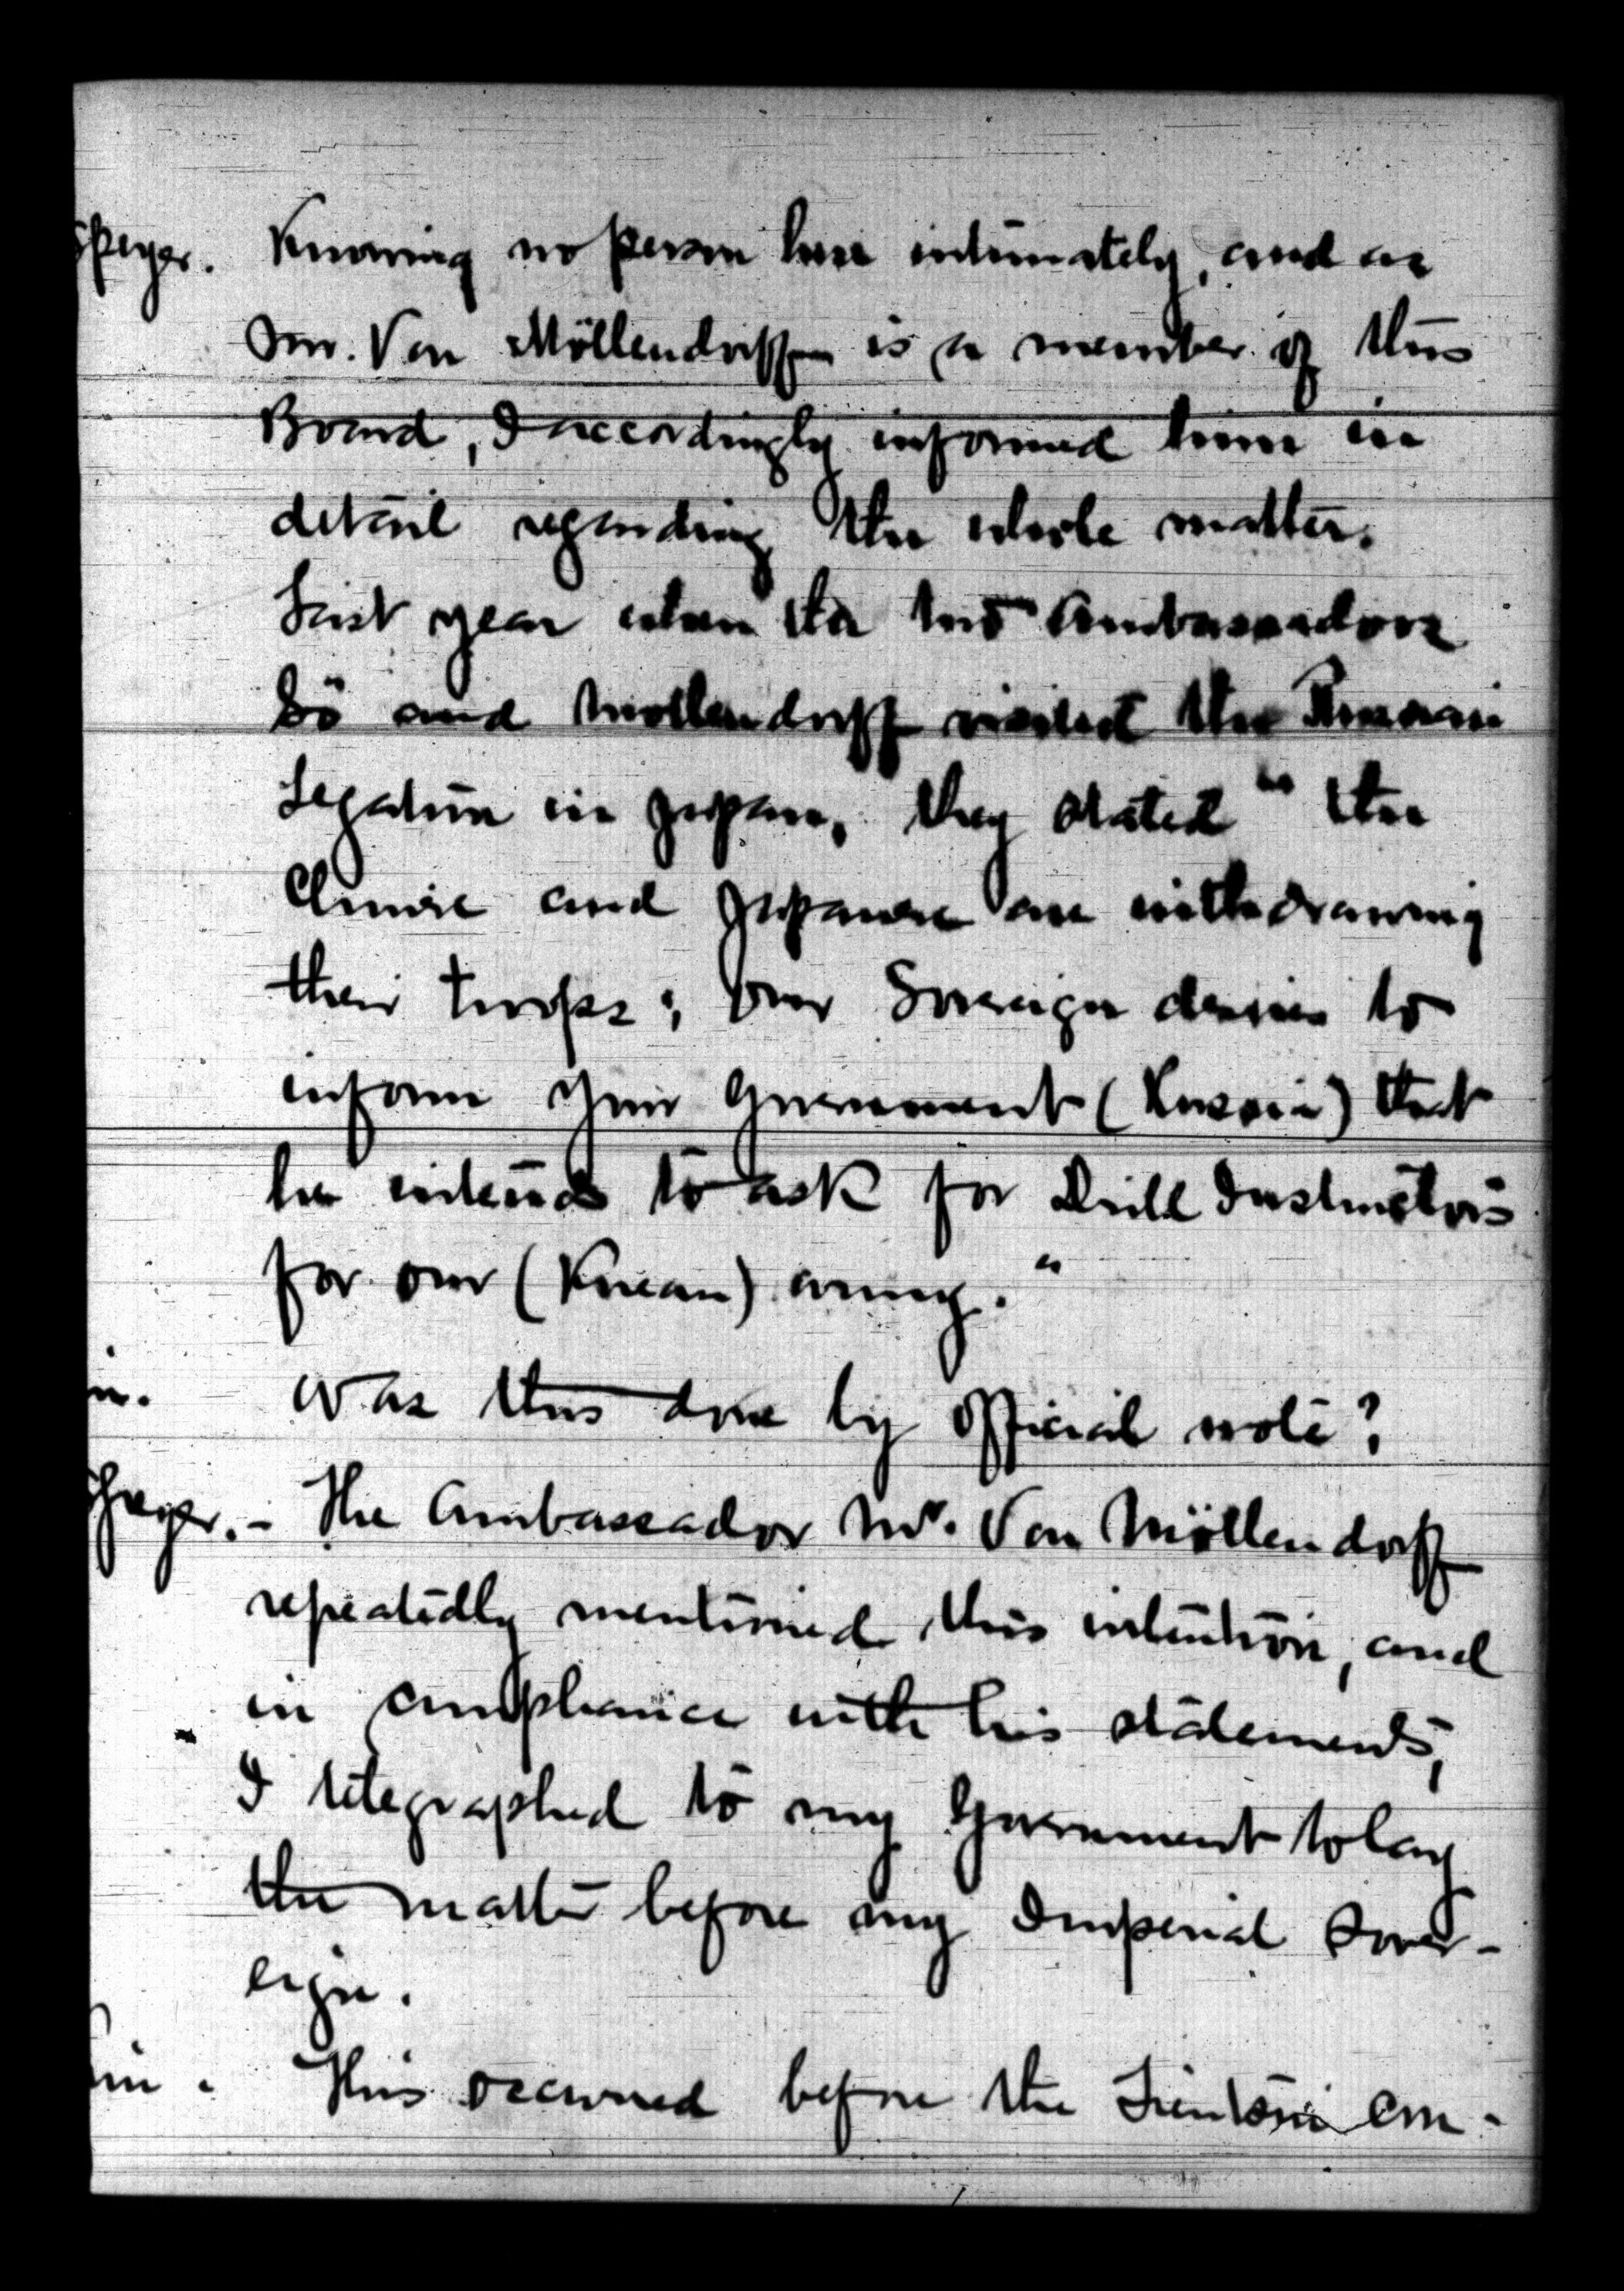 Speyer. Knowing no person here intimately, and as
Mr. Von Möllendorff is a member of this
Board, I accordingly informed him in
detail regarding the whole matter.
Last year when the two Ambassadors
Sö and Möllendorff visited the Russian
Legation in Japan, they stated "the
Chinese and Japanese are withdrawing
their troops; our Sovereign desires to
inform your Government (Russia) that
he intends to ask for Drill Instructors
for our (Korean) army."
Was this done by official note?
Speyer. - The Ambassador Mr. Von Möllendorff
repeatedly mentioned this intention, and
in compliance with his statements,
I telegraphed to my Government to lay
the matter before my Imperial Sover-
eign.
This occurred before the Tientsin Con-